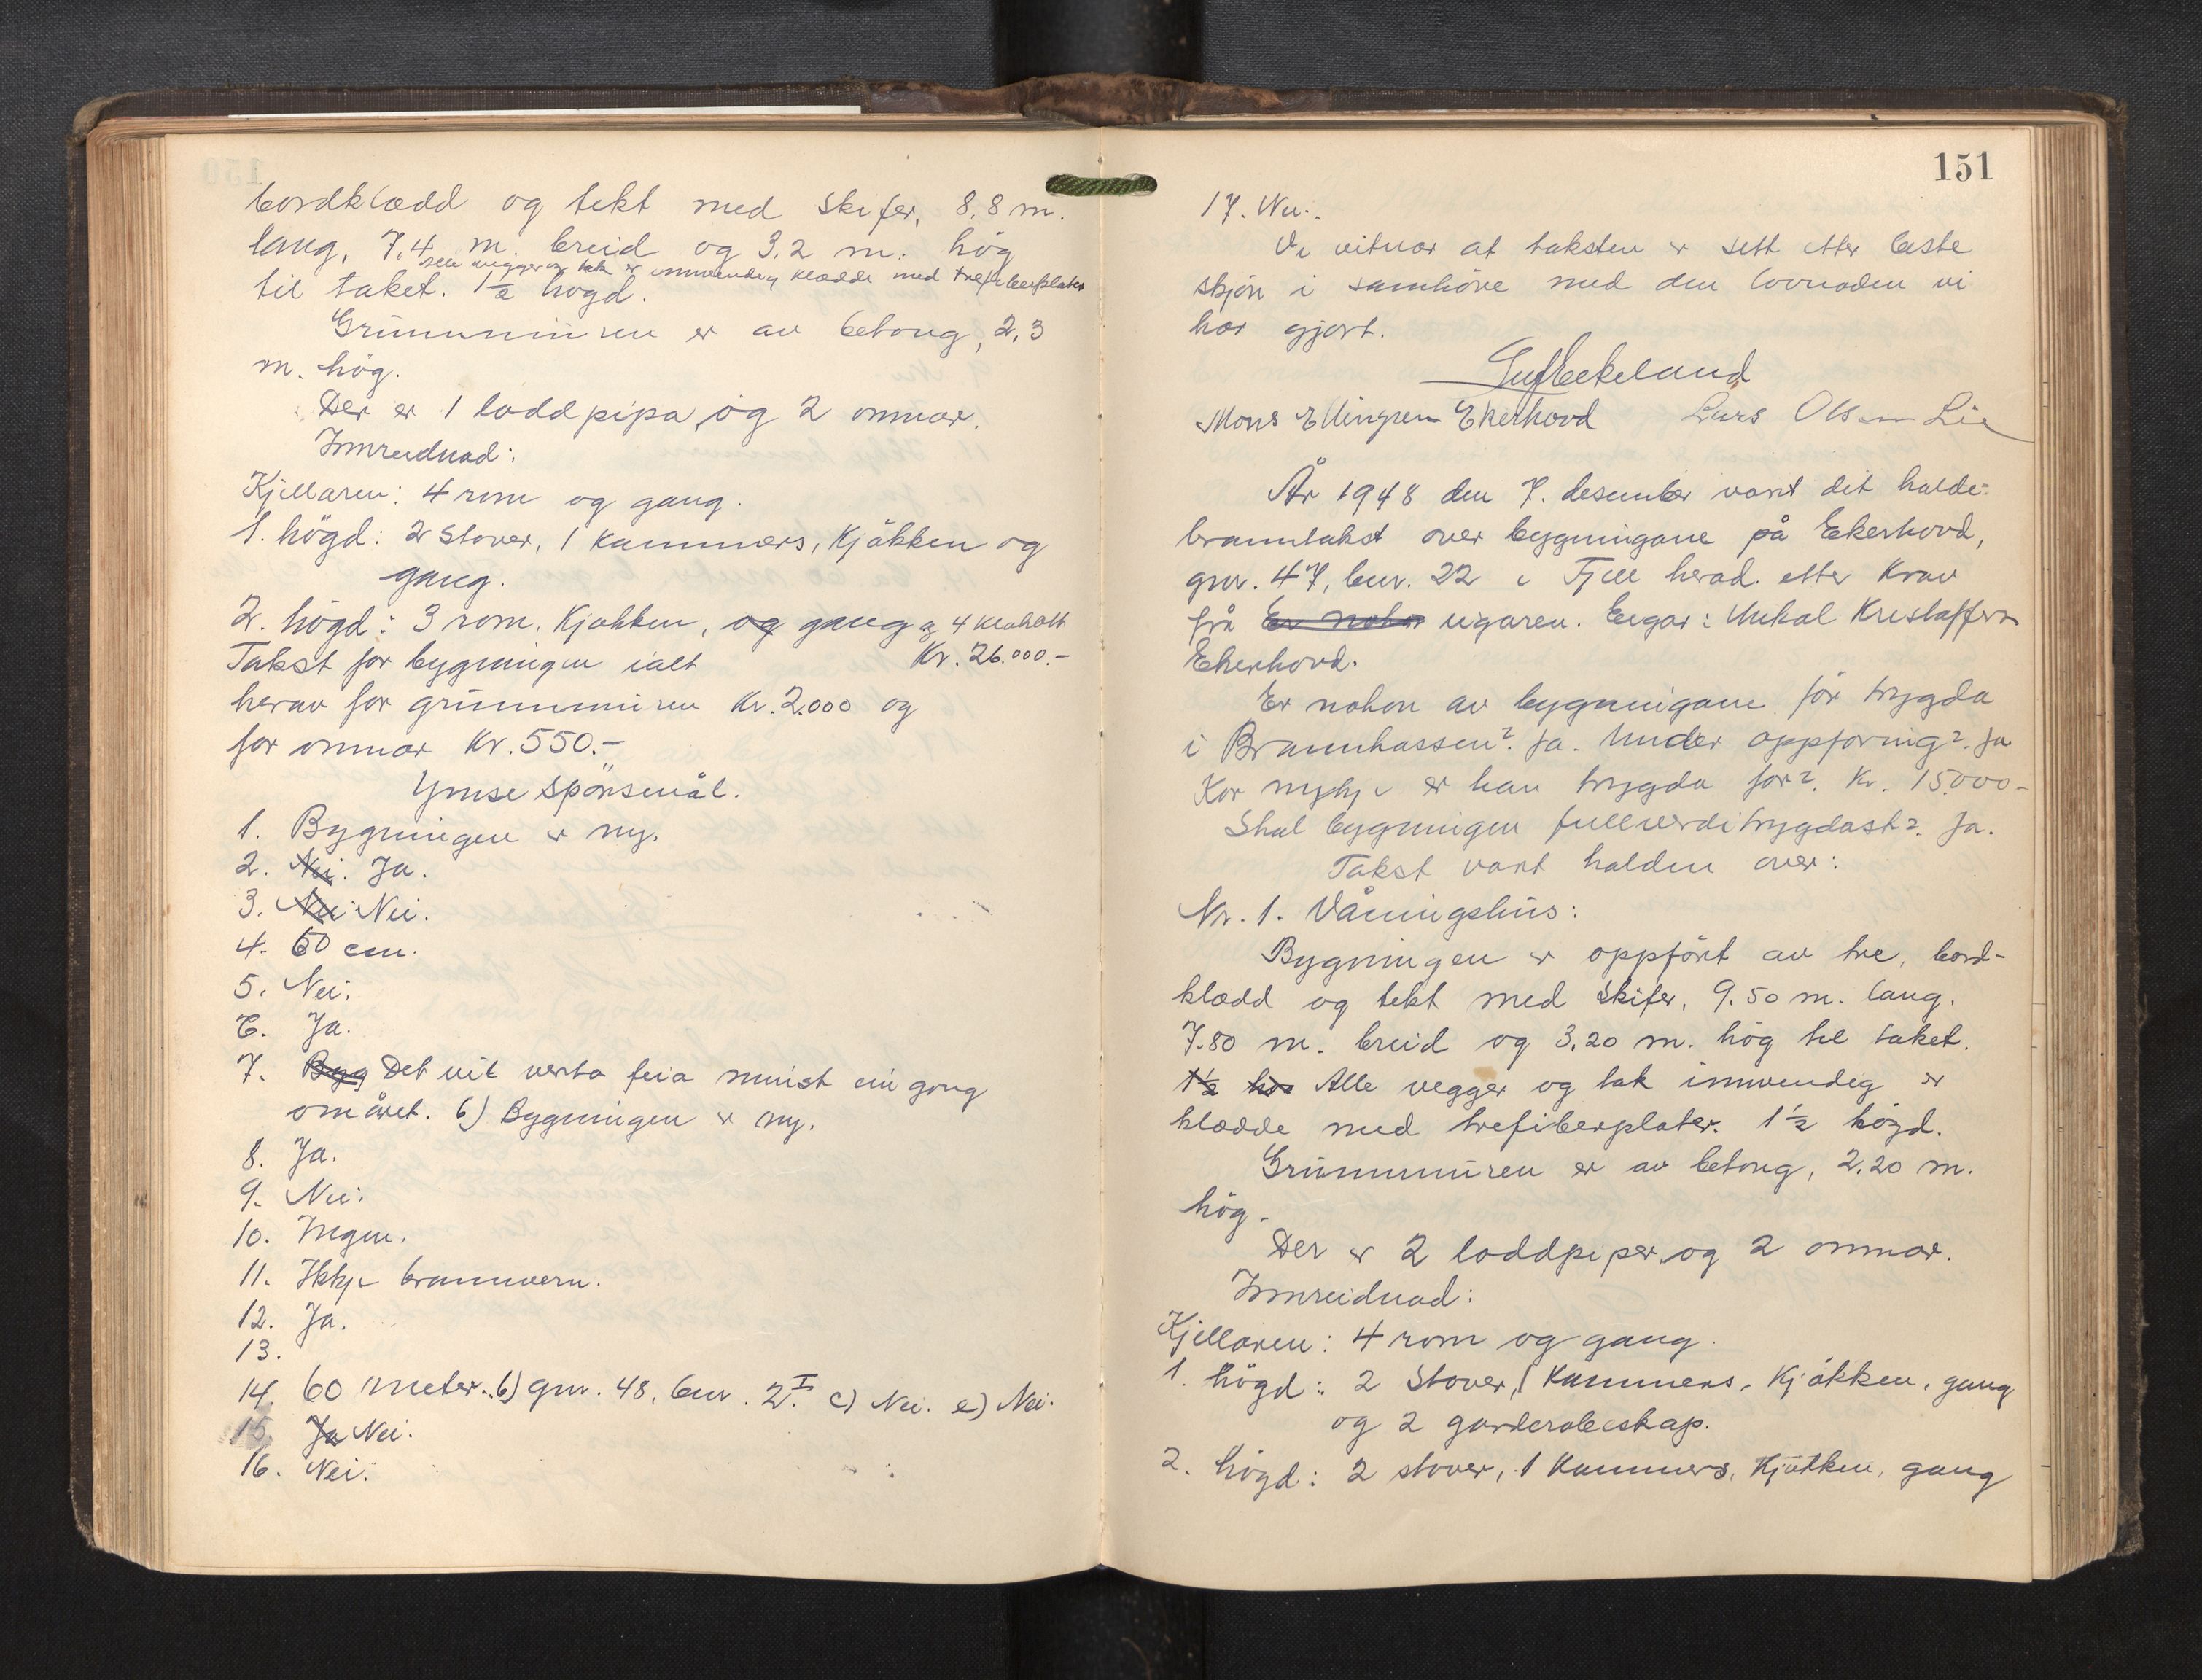 bordklædd og tekt med skifer, 8,8 m.
lang, 7,4 m. breid og 3,2 m. hög
Alle vegger og tak er innvendig klædde med trefiberplater
til taket. 1½ högd.
Grunnmuren er av betong, 2,3
m. hög.
Der er 1 loddpipa og 2 omnar.
Innreidnad:
Kjellaren: 4 rom og gang.
1. högd: 2 stover, 1 kammers, kjökken og
gang.
2. högd: 3 rom, kjökken, og gang og 4 klæhatt
Takst for bygningen ialt Kr. 26.000.-
herav for grunnmuren Kr. 2.000 og
for omnar Kr. 550.-
Ymse spörsmål.
1. Bygningen er ny.
2. Nei. Ja.
3. Nei Nei.
4. 60 cm.
5. Nei.
6. Ja.
7. Byg Det vil verta feia minst ein gong
om året. b) Bygningen er ny.
8. Ja.
9. Nei.
10. Ingen.
11. Ikkje brannvern.
12. Ja.
13.
14. 60 meter. b) gnr. 48, bnr. 2.I c) Nei. e) Nei.
15. Ja Nei.
16. Nei.
151
17. Nei.
Vi vitnar at taksten er sett etter beste
skjön i samhöve med den lovnaden vi
har gjort.
Mons Ellingsen Ekerhovd Lars Olsen Lie
År 1948 den 7. desember vart det halde
branntakst over bygningane på Ekerhovd,
gnr. 47, bnr. 22 i Fjell herad. etter krav
frå Er nokon eigaren. Eigar: Mikal Kristoffersen
Ekerhovd.
Er nokon av bygningane för trygda
i Brannkassen? Ja. Under oppföring? Ja
Kor mykje er han trygda for? Kr. 15.000-
Skal bygningen fullverditrygdast? Ja.
Takst vart halden over:
Nr. 1. Våningshus:
Bygningen er oppfört av tre, bord-
klædd og tekt med skifer, 9.50 m. lang.
7.80 m. breid og 3.20 m. hög til taket.
1½ hög Alle vegger og tak innvendig er
klædde med trefiberplater. 1½ högd.
Grunnmuren er av betong, 2.20 m.
hög.
Der er 2 loddpiper og 2 omnar.
Innreidnad:
Kjellaren: 4 rom og gang.
1. högd: 2 stover, 1 kammers, kjökken, gang
og 2 garderobeskap.
2. högd: 2 stover, 1 kammers, kjökken, gang